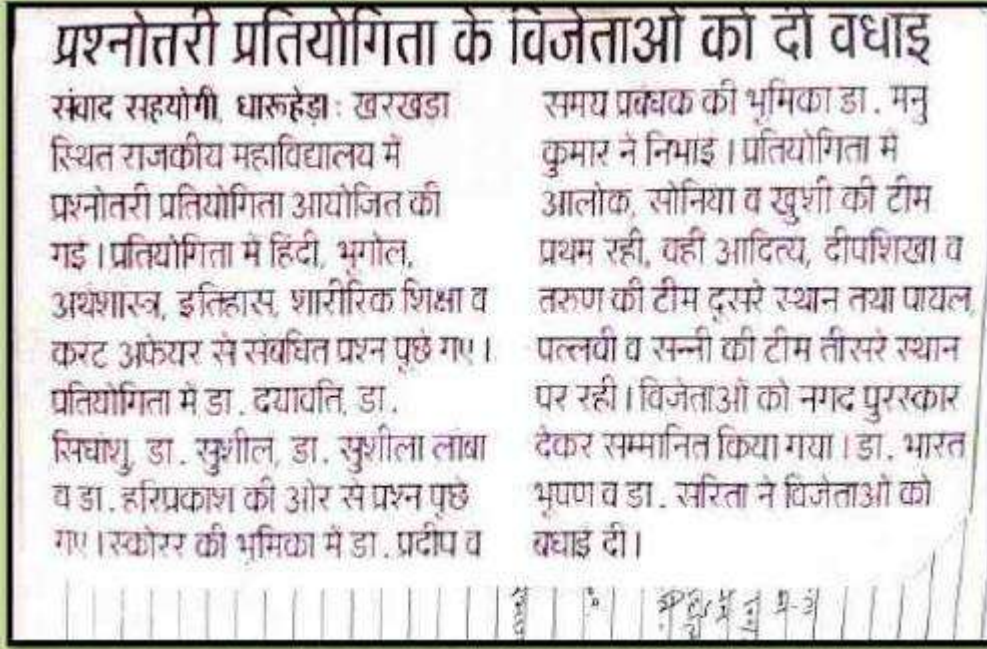 प्रश्नोत्तरी प्रतियोगिता के विजेताओं को दी बधाई
संवाद सहयोगी, धारूहेड़ा : खरखड़ा
स्थित राजकीय महाविद्यालय में
प्रश्नोतरी प्रतियोगिता आयोजित की
गई । प्रतियोगिता में हिंदी, भूगोल,
अर्थशास्त्र, इतिहास, शारीरिक शिक्षा व
करंट अफेयर से संबंधित प्रश्न पूछे गए ।
प्रतियोगिता में डा . दयावति, डा .
सिधांशु, डा . सुशील, डा . सुशीला लांबा
व डा . हरिप्रकाश की ओर से प्रश्न पूछे
गए । स्कोरर की भूमिका में डा . प्रदीप व
समय प्रबंधक की भूमिका डा . मनु
कुमार ने निभाई । प्रतियोगिता में
आलोक, सोनिया व खुशी की टीम
प्रथम रही, वहीं आदित्य, दीपशिखा व
तरुण की टीम दूसरे स्थान तथा पायल,
पल्लवी व सन्नी की टीम तीसरे स्थान
पर रही । विजेताओं को नगद पुरस्कार
देकर सम्मानित किया गया । डा . भारत
भूषण व डा . सरिता ने विजेताओं को
बधाई दी ।